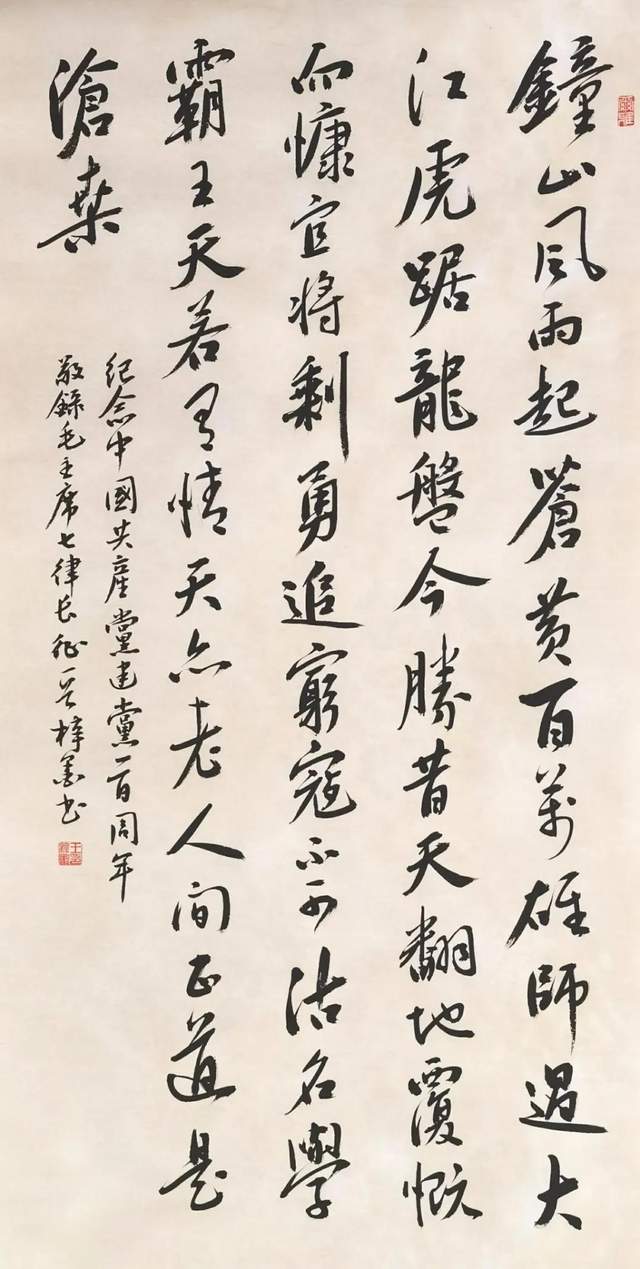 鐘山風雨起蒼黃百萬雄師過大
江虎踞龍盤今勝昔天翻地覆慨
而慷宜將剩勇追窮寇不可沽名學
霸王天若有情天亦老人間正道是
滄桑
紀念中國共產黨建黨一百周年
敬錄毛主席七律长征 梓墨书